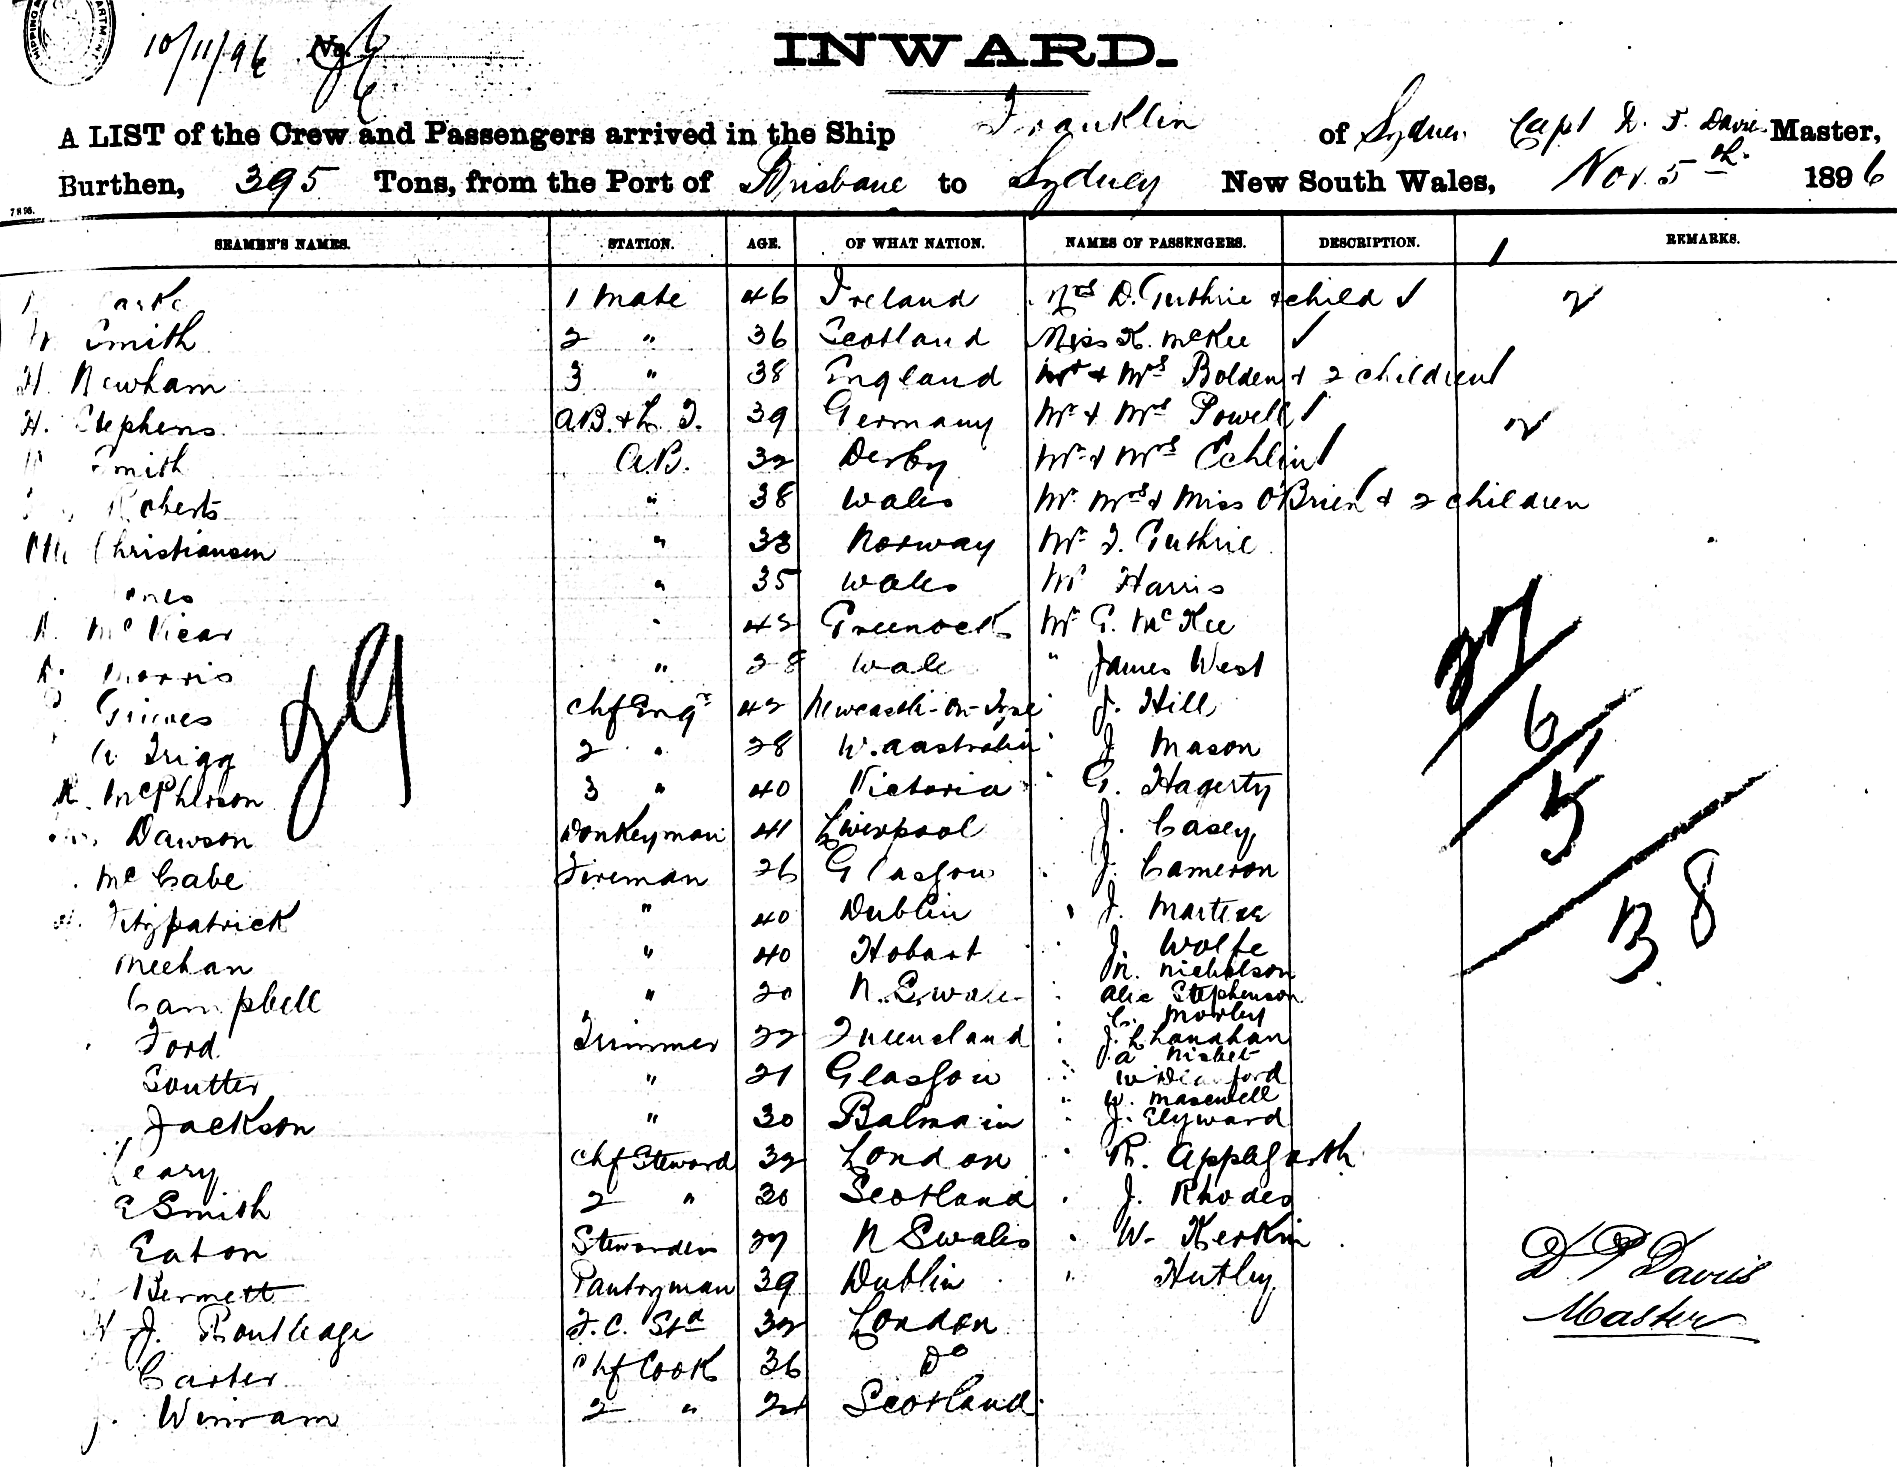 10/11/96 No. 6
INWARD.
A LIST of the Crew and Passengers arrived in the Ship Franklin of Sydney Capt D. P. Davies Master,
Burthen, 395 Tons, from the Port of Brisbane to Sydney New South Wales, Nov. 5th. 1896
SEAMEN'S NAMES. STATION. AGE. OF WHAT NATION. NAMES OF PASSENGERS. DESCRIPTION. REMARKS.
1 Mate 46 Ireland Mrs D. Guthrie & child 2
Smith 2 " 36 Scotland Miss K. McKee
H. Newham 3 " 38 England Mr & Mrs Bolden & 2 children
H. Stephens AB. & L. T. 39 Germany Mr & Mrs Powell 2
Smith A.B. 32 Derby Mr & Mrs Echlin
Roberts " 38 Wales Mr. Mrs & Miss O'Brien & 2 children
Christiansen " 33 Norway Mr. J. Guthrie
" 35 Wales Mr Harris
McVicar " 42 Greenock Mr G. McKee
Morris " 28 Wale " James West
Grimes Chf Engr 42 Newcastle-on-Tyne " J. Hill
Trigg 2 " 28 W. Aastralia " J Mason
McPherson 3 " 40 Victoria " G. Hagerty
Dawson Donkeyman 41 Liverpool J. Casey
McCabe Fireman 26 Glasgow J. Cameron
Fitzpatrick " 40 Dublin J. Martin
Meehan " 40 Hobart J. Wolfe
M. Nicholson
Campbell " 20 N. S. Wales Alic Stephenson
C. Morley
Ford Trimmer 22 Queensland J. Lanahan
A Nisbet
Soutter " 21 Glasgow W
W. Maxwell
Jackson " 30 Balmain J. Elyward
Leary Chf Steward 32 London R. Applegarth
E Smith 2 " 30 Scotland J. Rhodes
Eaton Stewardess 27 N S Wales W. Kerkin
Bennett Pantryman 39 Dublin " Hutley
J. Routledge F.C. Std 32 London
Carter Chf Cook 36 Do
J. Winram 2 " 21 Scotland
29
27
6
5
38
D P Davies
Master